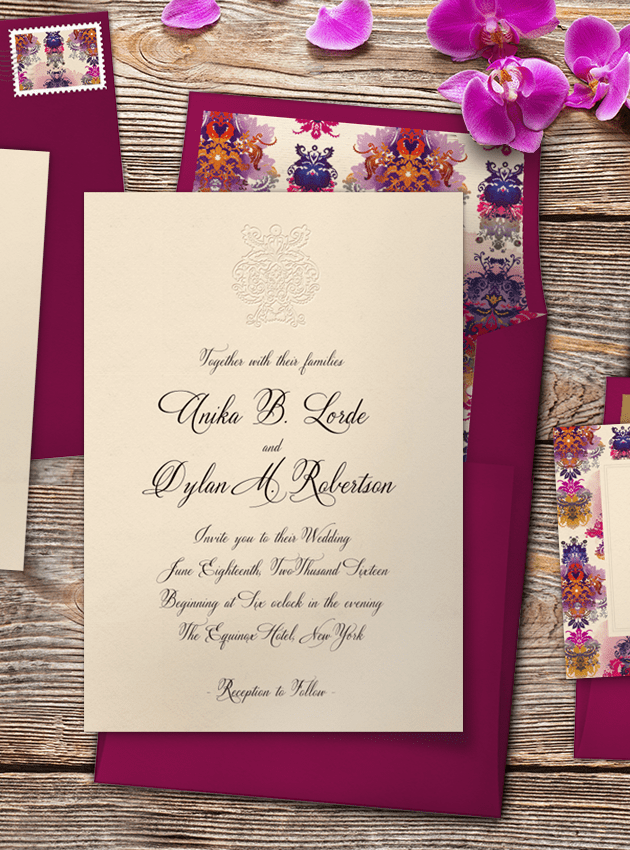 Together with their families
Anika B. Lorde
and
Dylan M. Robertson
Invite you to their Wedding
June Eighteenth, Two Thousand Sixteen
Beginning at Six oclock in the evening
The Equinox Hotel, New York
- Reception to Follow -